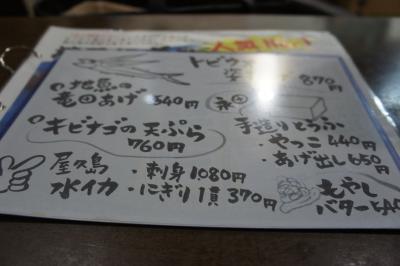 トビウオ
姿
870円
地魚の
竜田あげ 540円
キビナゴの天ぷら
760円
手造りとうふ
・やっこ 440円
・あげ出し 550円
屋久島
水イカ
・刺身 1,080円
・にぎり1貫 370円
もやし
バター 540